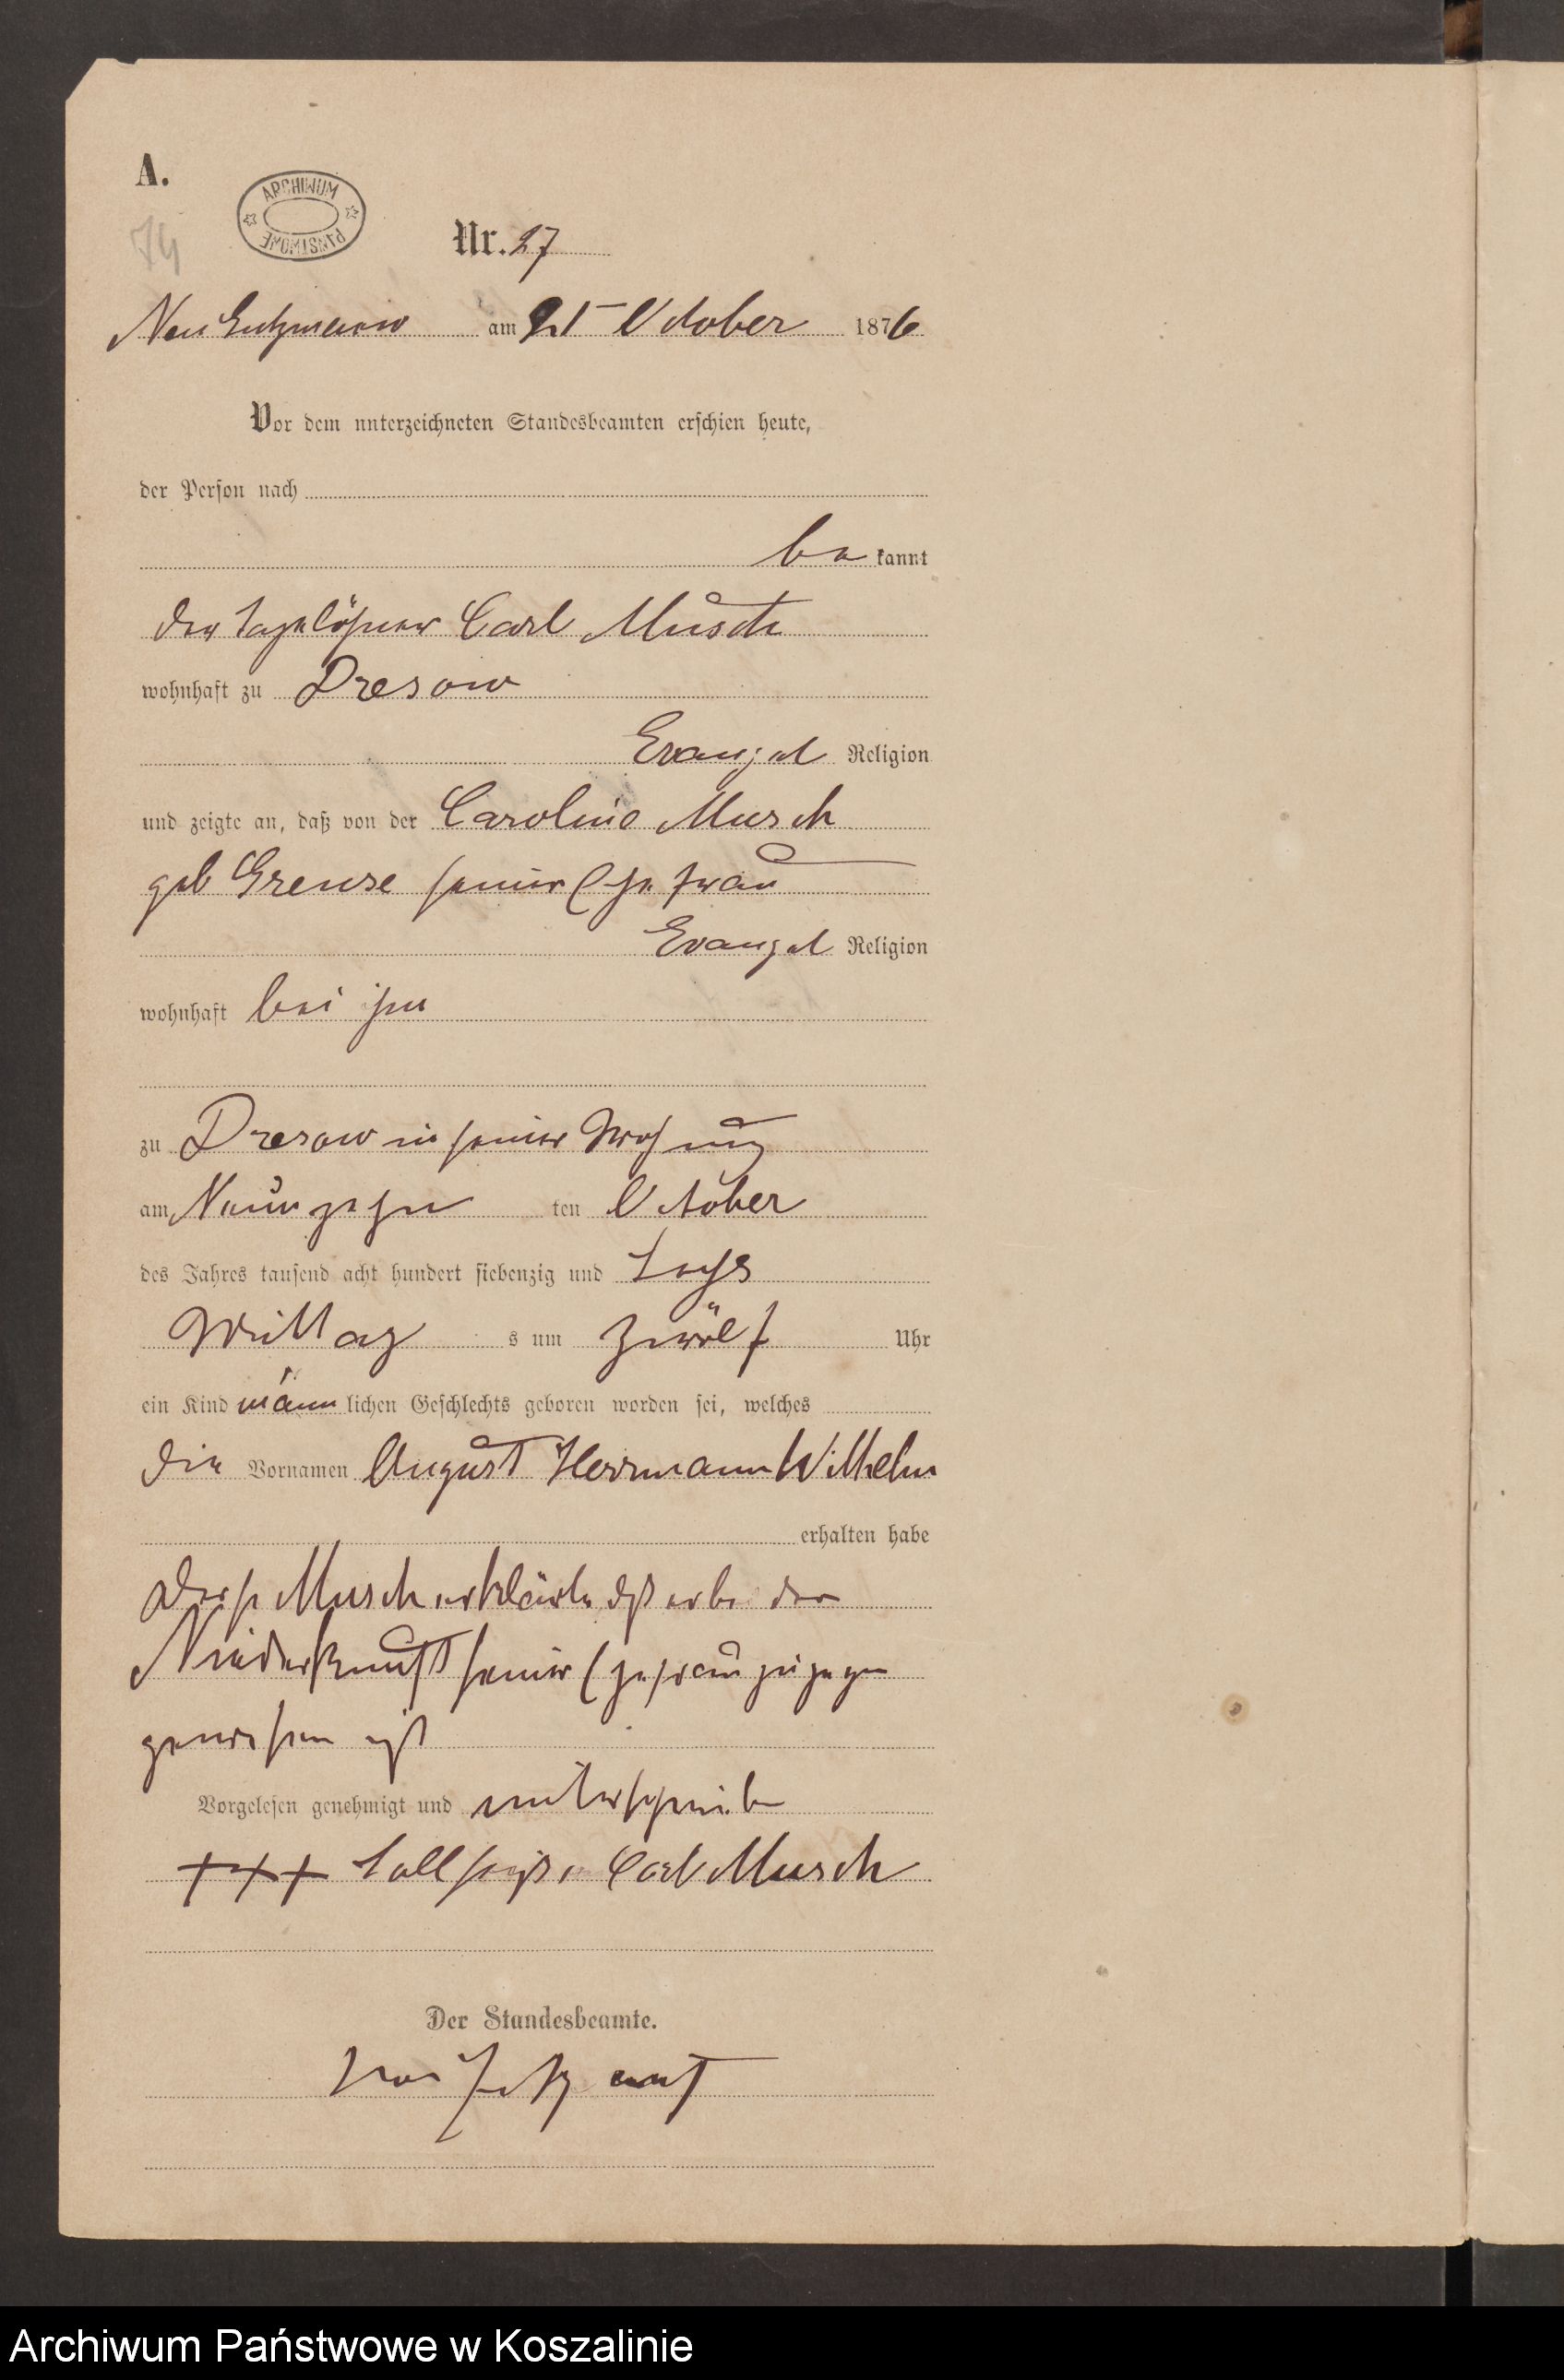 A.
ARCHIWUM PAŃSTWOWE
74
Nr. 27
Neu Gutzmerow am 21 October 1876
Vor dem unterzeichneten Standesbeamten erschien heute,
der Person nach
be kannt
der Tagelöhner Carl Musch
wohnhaft zu Dresow
Evangel Religion
und zeigte an, daß von der Caroline Musch
geb seiner Ehefrau
Evangel Religion
wohnhaft bei ihm
zu Dresow in seiner Wohnung
am Neunzehn ten October
des Jahres tausend acht hundert siebenzig und Sechs
Mittag s um zwölf Uhr
ein Kind männ lichen Geschlechts geboren worden sei, welches
die Vornamen August Herrmann Wilhelm
erhalten habe
Musch erklärte der
Niederkunft seiner Ehefrau zugegen
gewesen ist
Vorgelesen genehmigt und unterschrieben
+++ Carl Musch
Der Standesbeamte.
Archiwum Państwowe w Koszalinie